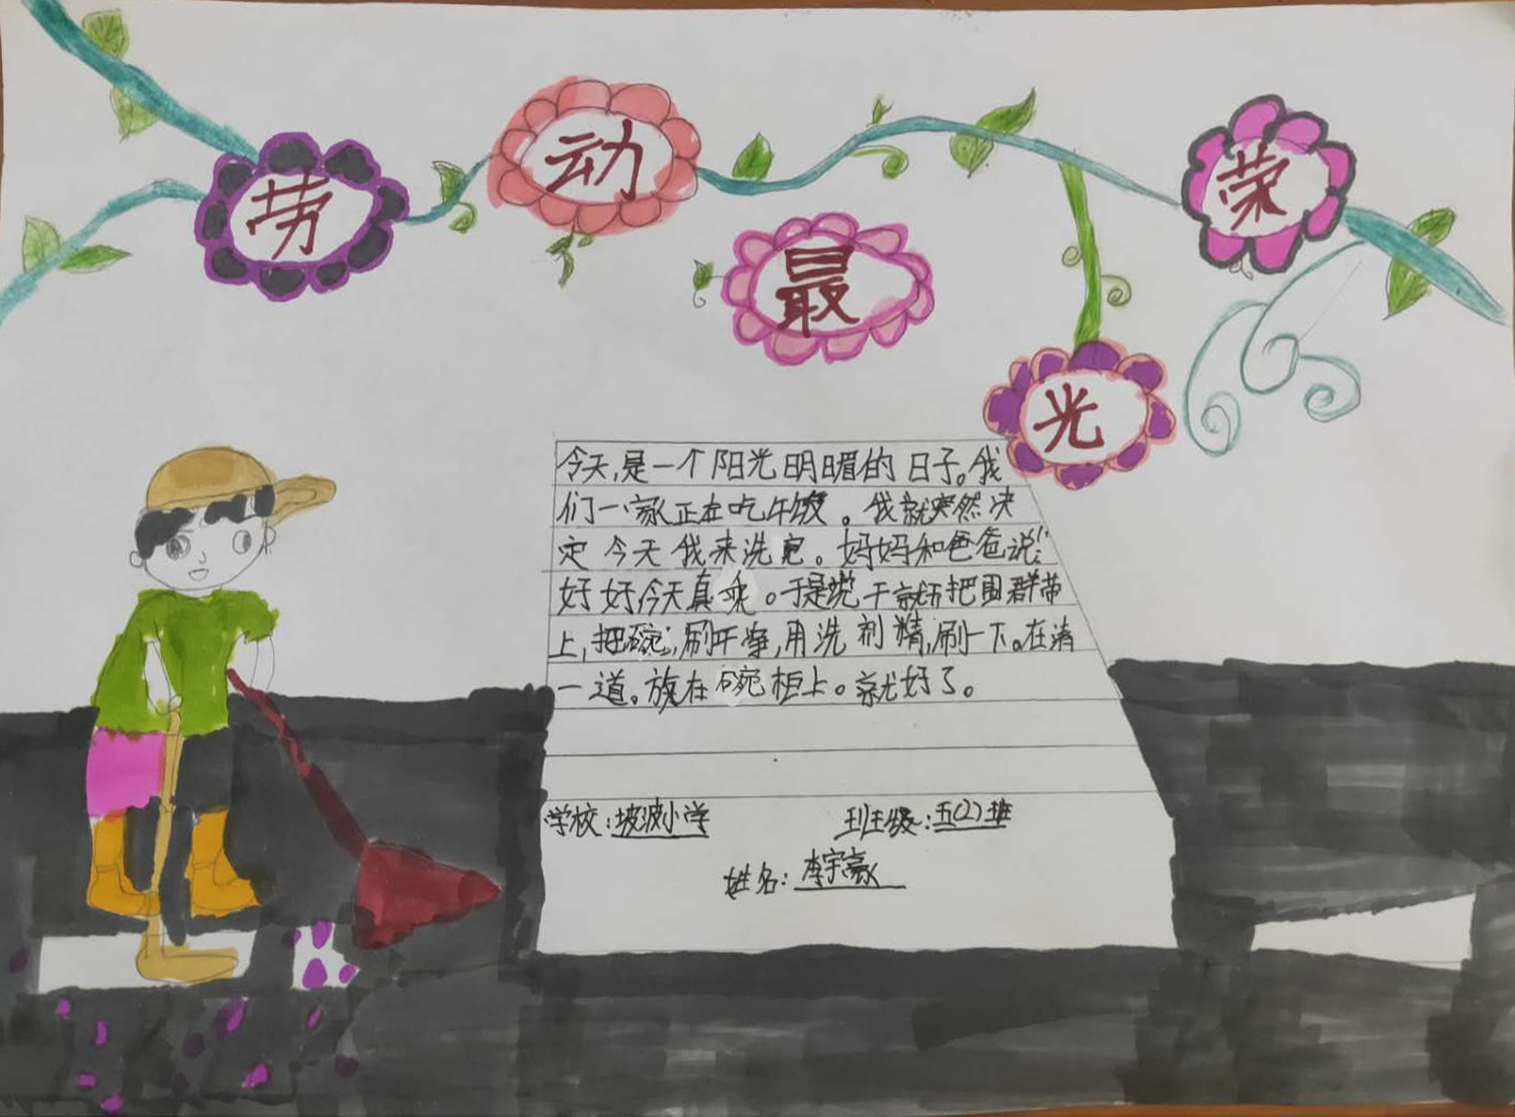 劳动最光荣
今天,是一个阳光明媚的日子。我
们一家正在吃午饭。我就突然决
定今天我来洗碗。妈妈和爸爸说:
好好今天真乖。于是说干就把围群带
上,把碗,刷干净,用洗剂精,刷一下。在清
一道。放在碗柜上。就好了。
学校:坡波小学 班级:五(2)班
姓名:李宇豪